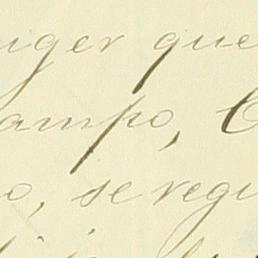 uger que
ampo, C
o, se regu